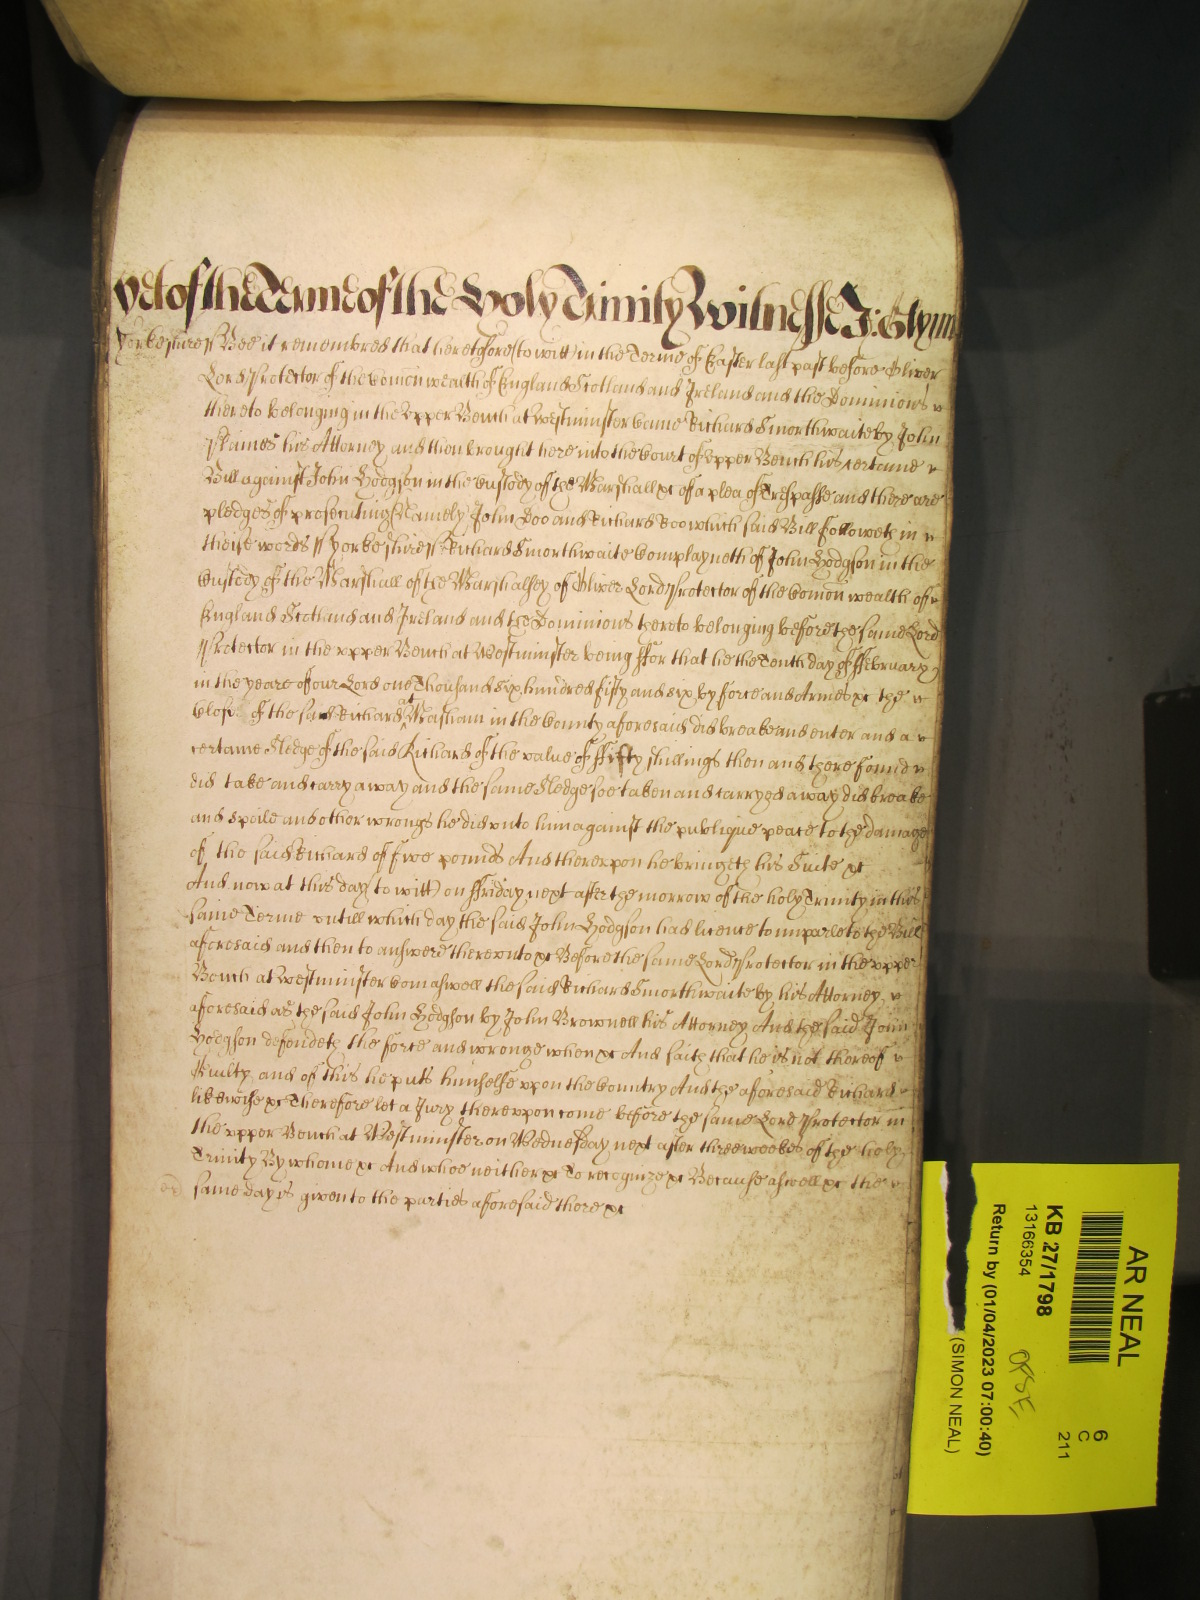 Yet of the Terme of the Holy Trinity Witnesse J: Glynn
Yorkeshire ss Bee it remembred that heretofore (to witt) in the Terme of Easter last past before Oliver
Lord Protector of the Comon wealth of England Scotland and Ireland and the Dominions
thereto belonging in the Upper Bench at Westminster came Richard Smorthwaite by John
his Attorney and then brought here into the Court of Upper Bench his certaine
Bill against John Hodgson in the Custody of the Marshall &c of a plea of Trespasse and there are
pledges of prosecuting Namely John Doo and Richard Roo which said Bill followeth in
theise words ss Yorkeshire ss Richard Smorthwaite Complayneth of John Hodgson in the
Custody of the Marshall of the Marshalsey of Oliver Lord Protector of the Comon wealth of
England Scotland and Ireland and the Dominions thereto belonging before the same Lord
Protector in the upper Bench at Westminster being ffor that he the Tenth day of ffebruary
in the yeare of our Lord one Thousand six hundred fifty and six by force and Armes &c the
Close of the said Richard at Masham in the County aforesaid did breake and enter and a
certaine Sledge of the said Richard of the value of ffifty shillings then and there found
did take and carry away and the same Sledge soe taken and carryed away did breake
and spoile and other wrongs he did unto him against the publique peace to the damage
of the said Richard of five pounds And thereupon he bringeth his Suite &c
And now at this day (to witt) on ffriday next after the morrow of the holy Trinity in this
same Terme untill which day the said John Hodgson had licence to imparle to the Bill
aforesaid and then to answere thereunto &c Before the same Lord Protector in the upper
Bench at Westminster Com aswell the said Richard Smorthwaite by his Attorney
aforesaid as the said John Hodgson by John Brownell his Attorney And the said John
Hodgson defendeth the force and wronge when &c And saith that he is not thereof
Guilty and of this he puts himselfe upon the Country And the aforesaid Richard
likewise &c Therefore let a Jury thereupon come before the same Lord Protector in
the upper Bench at Westminster on Wednesday next after three weekes of the holy
Trinity By whome &c And whoe neither &c To recognize &c Because aswell &c the
same day is given to the parties aforesaid there &c
AR NEAL
6
C
211
KB 27/1798
13166354
Return by (01/04/2023 07:00:40)
(SIMON NEAL)